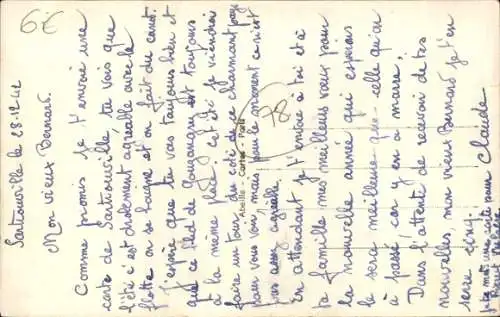 6€
Sartrouville le 28.12.42
Mon vieux Bernard.
Comme promis je t'envoie une
carte de Sartrouville, tu vois que
l'été c'est drôlement agréable avec la
flotte on se baigne et on fait du canot.
J'espère que tu vas toujours bien et
que ce pied de est toujours
à la même place. Cet été je viendrai
faire un tour du côté de ce charmant pays
pour vous voir, mais pour le moment ce n'est
pas assez agréable.
En attendant je t'embrasse à toi et à
ta famille mes meilleurs vœux pour
la nouvelle année qui espérons
le sera meilleure que celle qu'on
a passé, car y en a marre,
Dans l'attente de recevoir de tes
nouvelles, mon vieux Bernard je t'en
serre cinq.
Claude
mot une carte pour
78
Abeille - Cartes - Paris